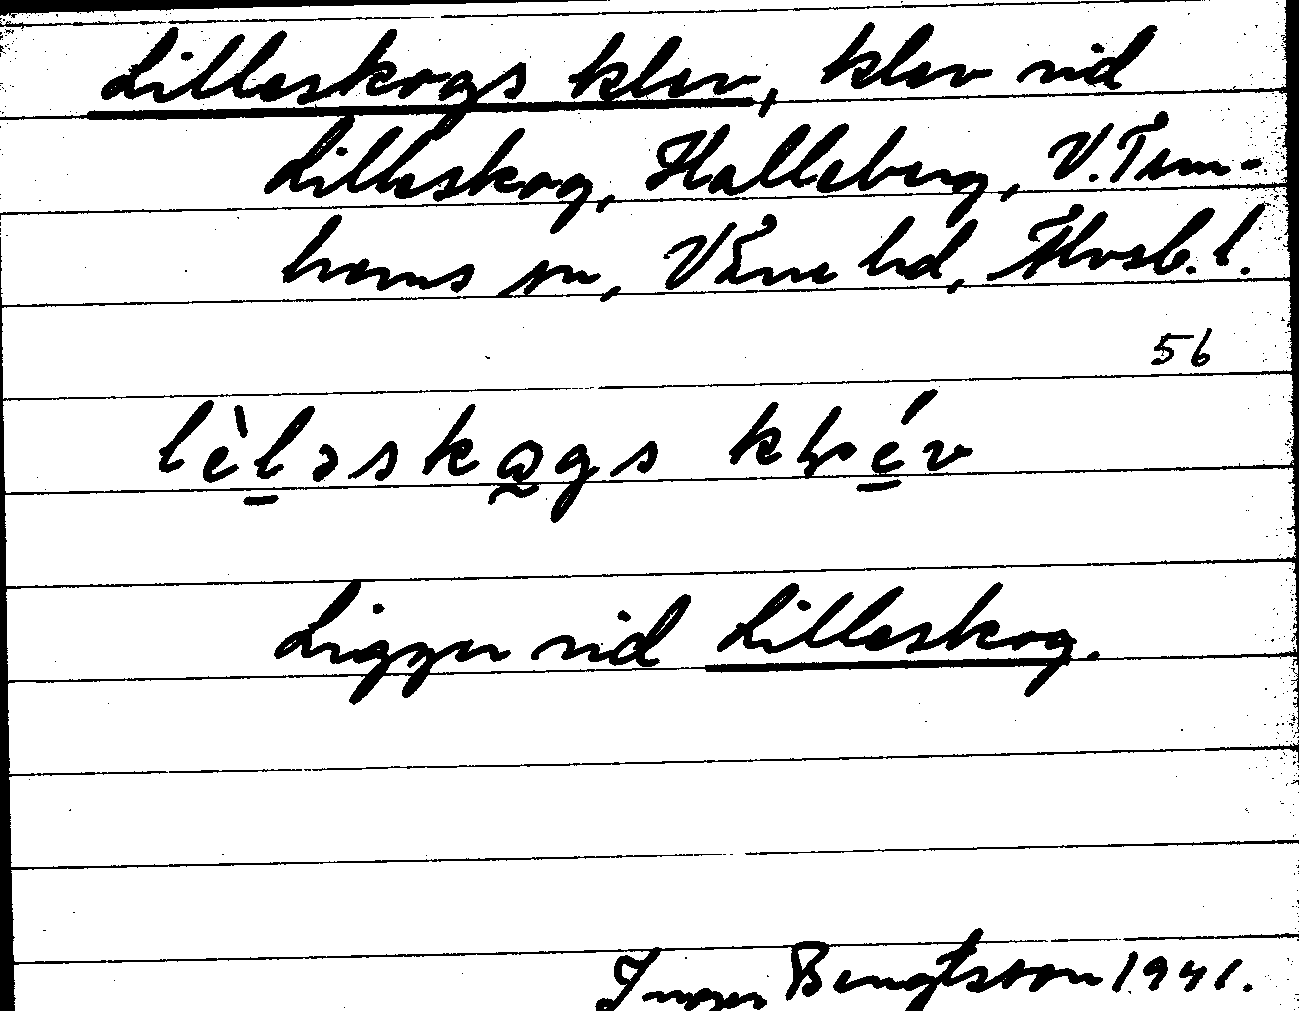 Lilleskogs klev, klev vid
Lilleskog, Halleberg, V. Tun-
hems sn, Väne hd, Älvsb. l.
56
lèl̲əskɑ̰gs kḷé̲v
Ligger vid Lilleskog.
Inger Bengtsson 1941.